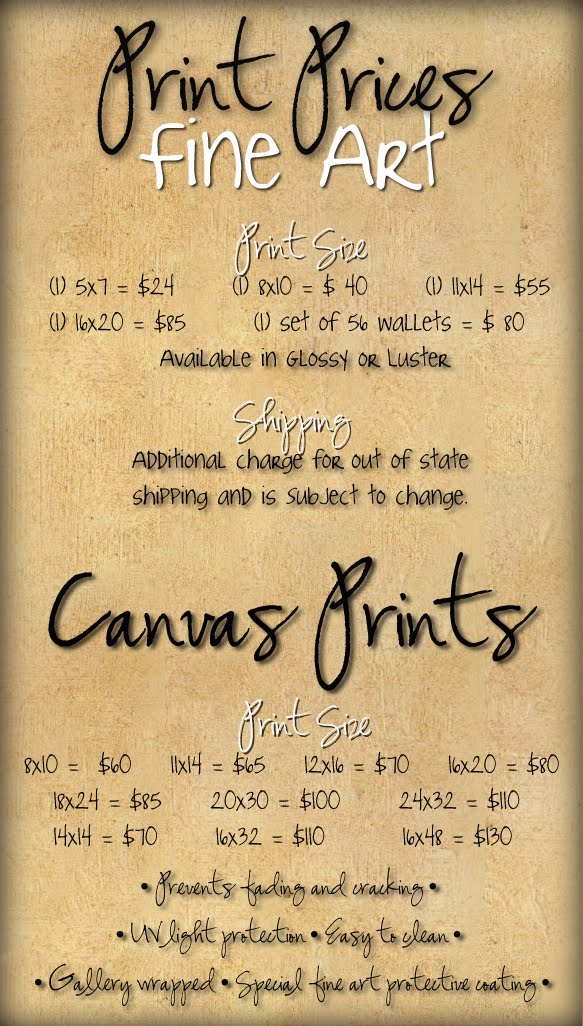 Print Prices
Fine Art
Print Size
(1) 5x7 = $24 (1) 8x10 = $ 40 (1) 11x14 = $55
(1) 16x20 = $85 (1) set of 56 wallets = $ 80
Available in Glossy or Luster
Shipping
Additional charge for out of state
shipping and is subject to change.
Canvas Prints
Print Size
8x10 = $60 11x14 = $65 12x16 = $70 16x20 = $80
18x24 = $85 20x30 = $100 24x32 = $110
14x14 = $70 16x32 = $110 16x48 = $130
• Prevents fading and cracking •
• UV light protection • Easy to clean •
• Gallery wrapped • Special fine art protective coating •